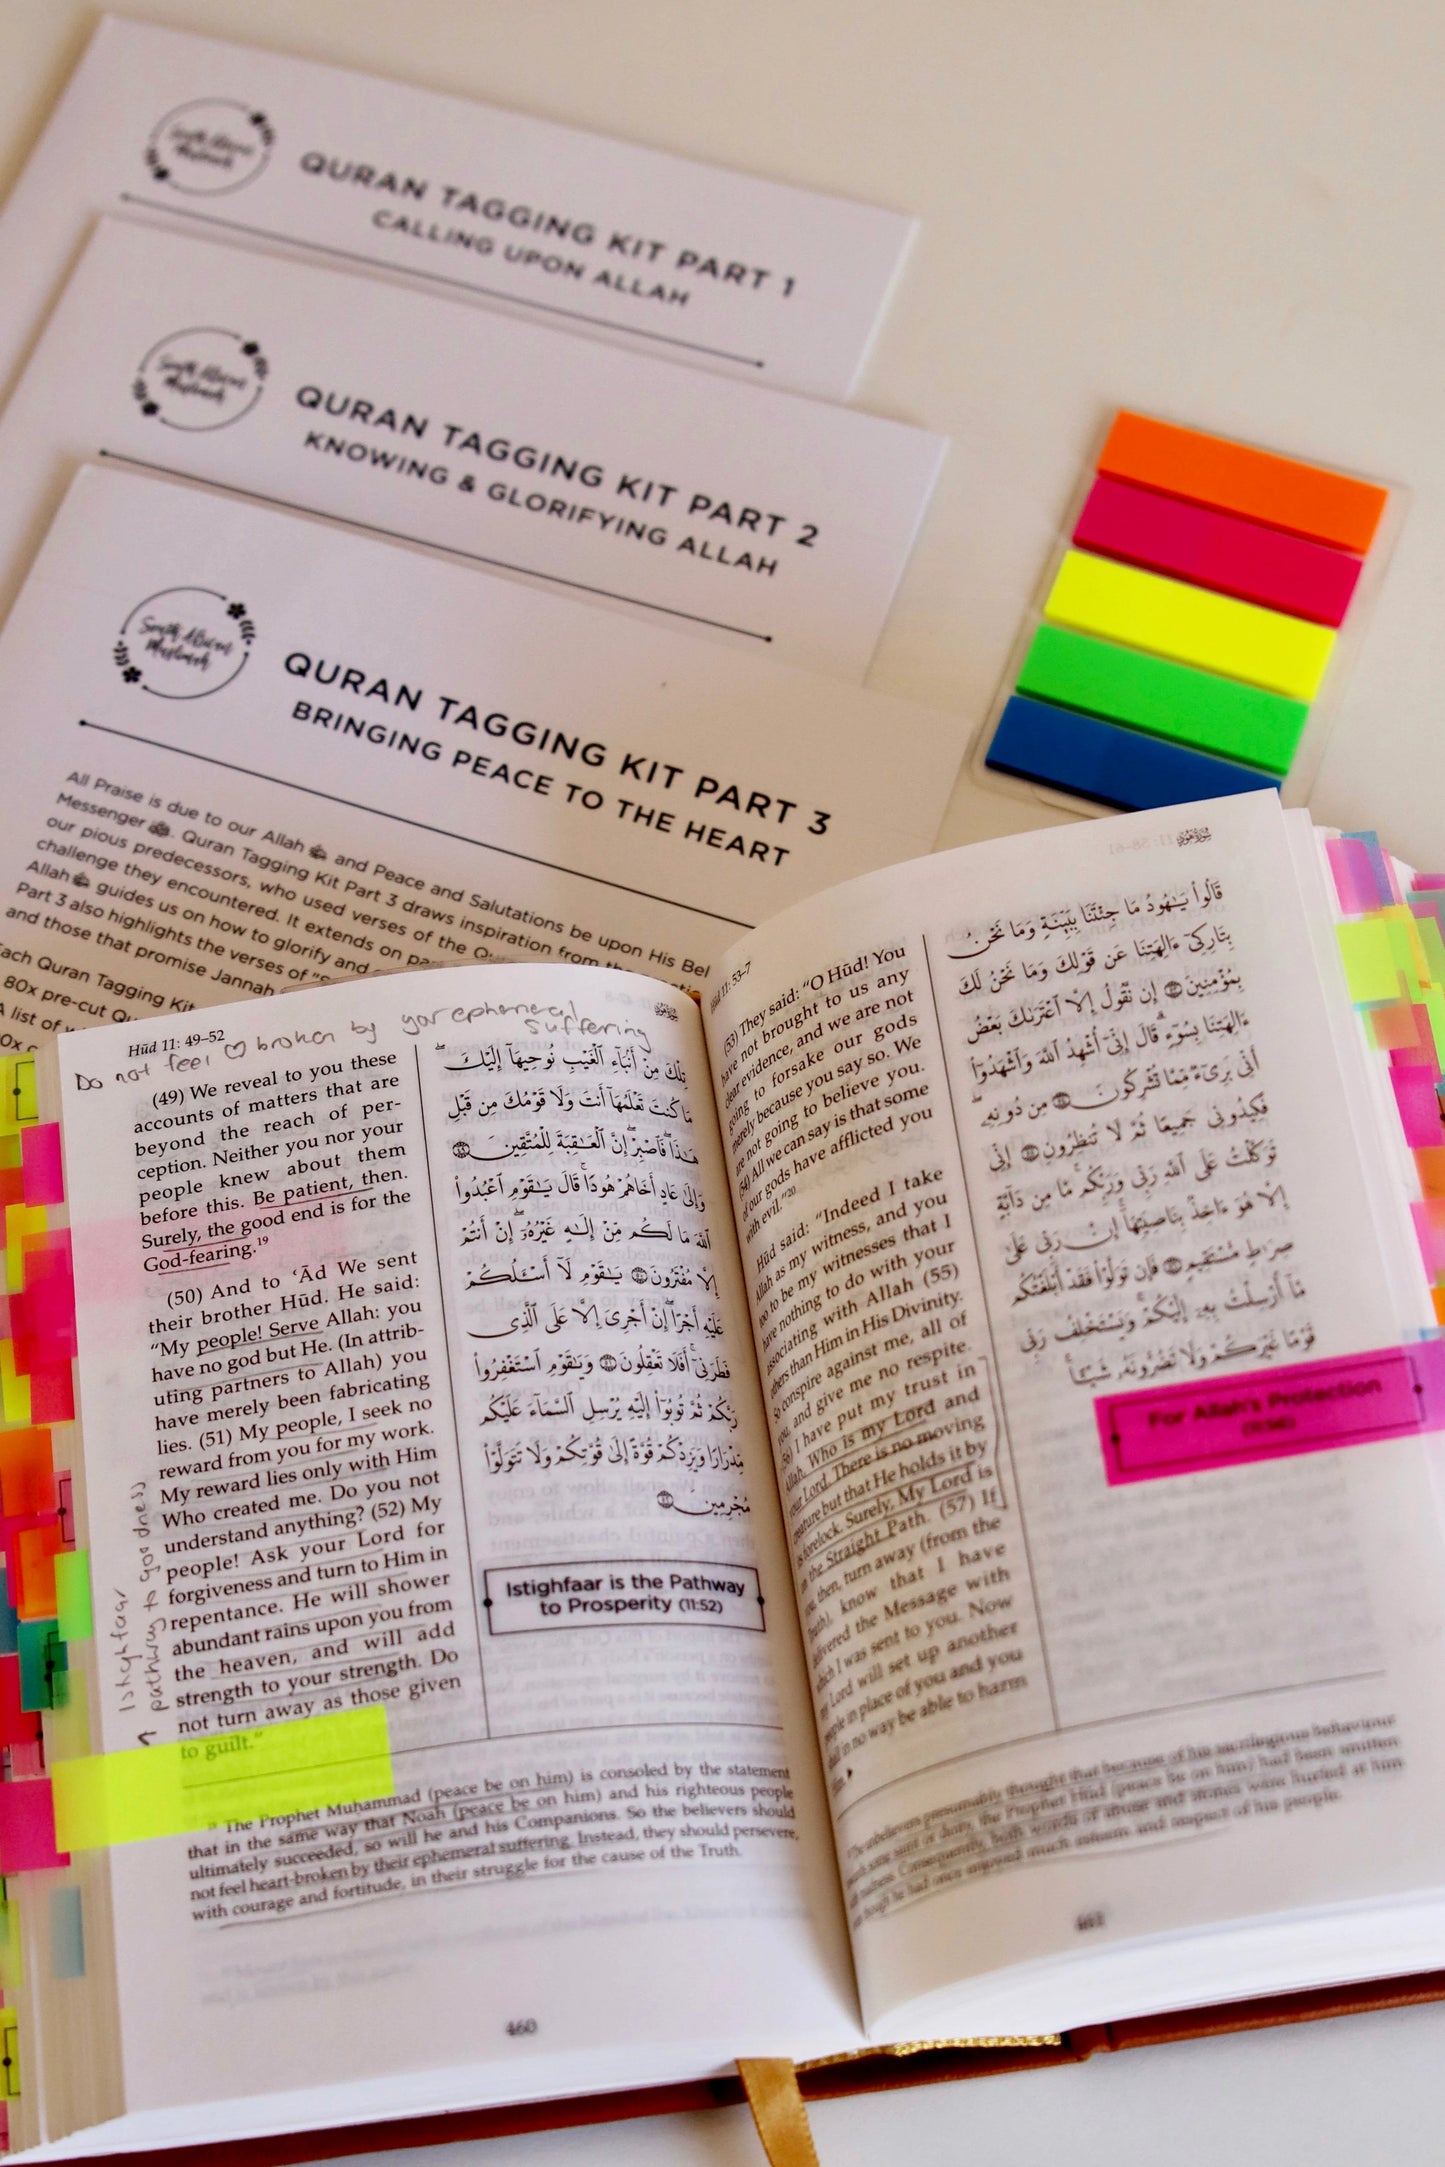 South African
Muslimah
QURAN TAGGING KIT PART 1
CALLING UPON ALLAH
South African
Muslimah
QURAN TAGGING KIT PART 2
KNOWING & GLORIFYING ALLAH
South African
Muslimah
QURAN TAGGING KIT PART 3
BRINGING PEACE TO THE HEART
All Praise is due to our Allah and Peace and Salutations be upon His Bel
Messenger ﷺ. Quran Tagging Kit Part 3 draws inspiration from the
our pious predecessors, who used verses of the Qu
challenge they encountered. It extends on pa
Allah guides us on how to glorify and
Part 3 also highlights the verses of
and those that promise Jannah
Each Quran Tagging Kit
80x pre-cut Qu
A list of
Hūd 11: 49–52
Do not feel ♡ broken by your ephemeral
suffering
(49) We reveal to you these
accounts of matters that are
beyond the reach of per-
ception. Neither you nor your
people knew about them
before this. Be patient, then.
Surely, the good end is for the
God-fearing.¹⁹
(50) And to ‘Ād We sent
their brother Hūd. He said:
“My people! Serve Allah: you
have no god but He. (In attrib-
uting partners to Allah) you
have merely been fabricating
lies. (51) My people, I seek no
reward from you for my work.
My reward lies only with Him
Who created me. Do you not
understand anything? (52) My
people! Ask your Lord for
forgiveness and turn to Him in
repentance. He will shower
abundant rains upon you from
the heaven, and will add
strength to your strength. Do
not turn away as those given
to guilt.”
Istighfaar
pathway to goodness
تِلْكَ مِنْ أَنۢبَآءِ ٱلْغَيْبِ نُوحِيهَآ إِلَيْكَ
مَا كُنتَ تَعْلَمُهَآ أَنتَ وَلَا قَوْمُكَ مِن قَبْلِ
هَـٰذَا فَٱصْبِرْ إِنَّ ٱلْعَـٰقِبَةَ لِلْمُتَّقِينَ ٤٩
وَإِلَىٰ عَادٍ أَخَاهُمْ هُودًا قَالَ يَـٰقَوْمِ ٱعْبُدُوا۟
ٱللَّهَ مَا لَكُم مِّنْ إِلَـٰهٍ غَيْرُهُۥٓ إِنْ أَنتُمْ
إِلَّا مُفْتَرُونَ ٥٠ يَـٰقَوْمِ لَآ أَسْـَٔلُكُمْ
عَلَيْهِ أَجْرًا إِنْ أَجْرِىَ إِلَّا عَلَى ٱلَّذِى
فَطَرَنِىٓ أَفَلَا تَعْقِلُونَ ٥١ وَيَـٰقَوْمِ ٱسْتَغْفِرُوا۟
رَبَّكُمْ ثُمَّ تُوبُوٓا۟ إِلَيْهِ يُرْسِلِ ٱلسَّمَآءَ عَلَيْكُم
مِّدْرَارًا وَيَزِدْكُمْ قُوَّةً إِلَىٰ قُوَّتِكُمْ وَلَا تَتَوَلَّوْا۟
مُجْرِمِينَ ٥٢
Istighfaar is the Pathway
to Prosperity (11:52)
¹⁹ The Prophet Muhammad (peace be on him) is consoled by the statement
that in the same way that Noah (peace be on him) and his righteous people
ultimately succeeded, so will he and his Companions. So the believers should
not feel heart-broken by their ephemeral suffering. Instead, they should persevere,
with courage and fortitude, in their struggle for the cause of the Truth.
460
Hūd 11: 53–7
(53) They said: “O Hūd! You
have not brought to us any
clear evidence, and we are not
going to forsake our gods
merely because you say so. We
are not going to believe you.
(54) All we can say is that some
of our gods have afflicted you
with evil.”²⁰
Hūd said: “Indeed I take
Allah as my witness, and you
too to be my witnesses that I
have nothing to do with your
associating with Allah (55)
others than Him in His Divinity.
So conspire against me, all of
you, and give me no respite.
(56) I have put my trust in
Allah, Who is my Lord and
your Lord. There is no moving
creature but that He holds it by
its forelock. Surely, My Lord is
on the Straight Path. (57) If
you, then, turn away (from the
Truth), know that I have
delivered the Message with
which I was sent to you. Now
my Lord will set up another
people in place of you and you
shall in no way be able to harm
Him.
قَالُوا۟ يَـٰهُودُ مَا جِئْتَنَا بِبَيِّنَةٍ وَمَا نَحْنُ
بِتَارِكِىٓ ءَالِهَتِنَا عَن قَوْلِكَ وَمَا نَحْنُ لَكَ
بِمُؤْمِنِينَ ٥٣ إِن نَّقُولُ إِلَّا ٱعْتَرَىٰكَ بَعْضُ
ءَالِهَتِنَا بِسُوٓءٍ قَالَ إِنِّىٓ أُشْهِدُ ٱللَّهَ وَٱشْهَدُوٓا۟
أَنِّى بَرِىٓءٌ مِّمَّا تُشْرِكُونَ ٥٤ مِن دُونِهِۦ
فَكِيدُونِى جَمِيعًا ثُمَّ لَا تُنظِرُونِ ٥٥ إِنِّى
تَوَكَّلْتُ عَلَى ٱللَّهِ رَبِّى وَرَبِّكُم مَّا مِن دَآبَّةٍ
إِلَّا هُوَ ءَاخِذٌۢ بِنَاصِيَتِهَآ إِنَّ رَبِّى عَلَىٰ
صِرَٰطٍ مُّسْتَقِيمٍ ٥٦ فَإِن تَوَلَّوْا۟ فَقَدْ أَبْلَغْتُكُم
مَّآ أُرْسِلْتُ بِهِۦٓ إِلَيْكُمْ وَيَسْتَخْلِفُ رَبِّى
قَوْمًا غَيْرَكُمْ وَلَا تَضُرُّونَهُۥ شَيْـًٔا
For Allah's Protection
(11:56)
because of his sacrilegious behaviour
the Prophet Hūd (peace be on him) had been smitten
Consequently, both words of abuse and stones were hurled at him
though he had once enjoyed much esteem and respect of his people.
461